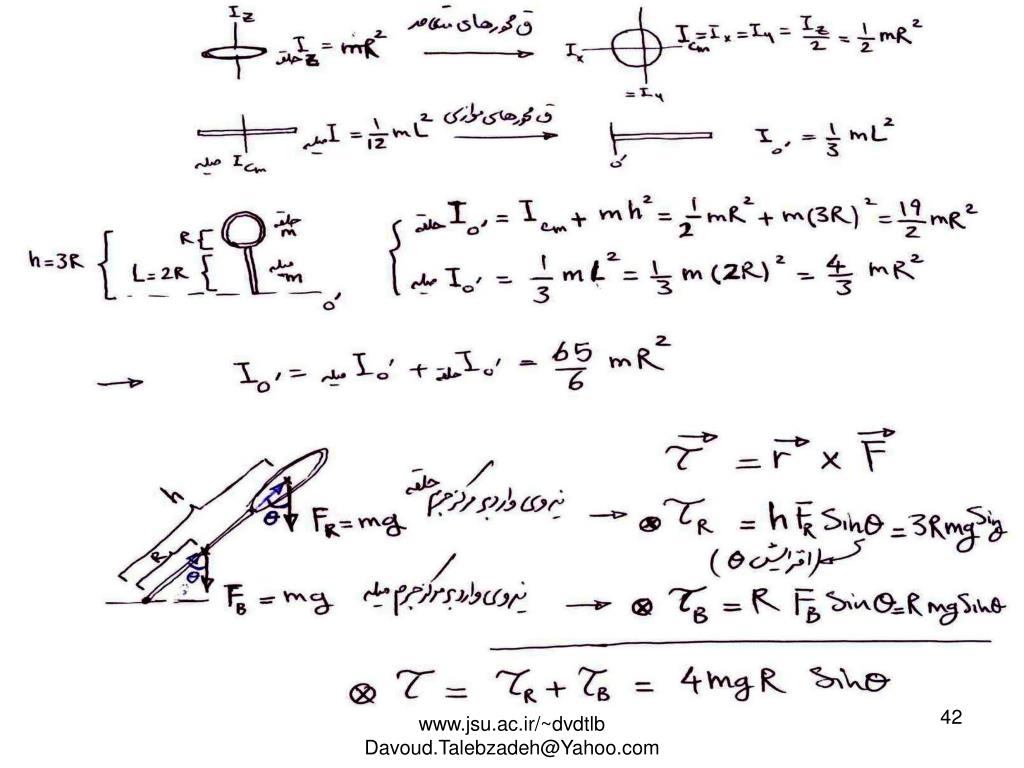 I_z
I_z حلقه = mR² ق محورهای متعامد I_x I_cm = I_x = I_y = I_z/2 = 1/2 mR²
= I_y
میله I = 1/12 mL² ق محورهای موازی I_o' = 1/3 mL²
میله I_cm o'
h=3R R L=2R حلقه m میله m o'
حلقه I_o' = I_cm + mh² = 1/2 mR² + m(3R)² = 19/2 mR²
میله I_o' = 1/3 mL² = 1/3 m(2R)² = 4/3 mR²
→ I_o' = میله I_o' + حلقه I_o' = 65/6 mR²
τ = r × F
h R θ θ
F_R = mg نیروی وارد بر مرکز جرم حلقه → ⊗ τ_R = h F_R Sinθ = 3Rmg Sinθ
(افزایش θ)
F_B = mg نیروی وارد بر مرکز جرم میله → ⊗ τ_B = R F_B Sinθ = Rmg Sinθ
⊗ τ = τ_R + τ_B = 4mgR Sinθ
www.jsu.ac.ir/~dvdtlb
Davoud.Talebzadeh@Yahoo.com
42